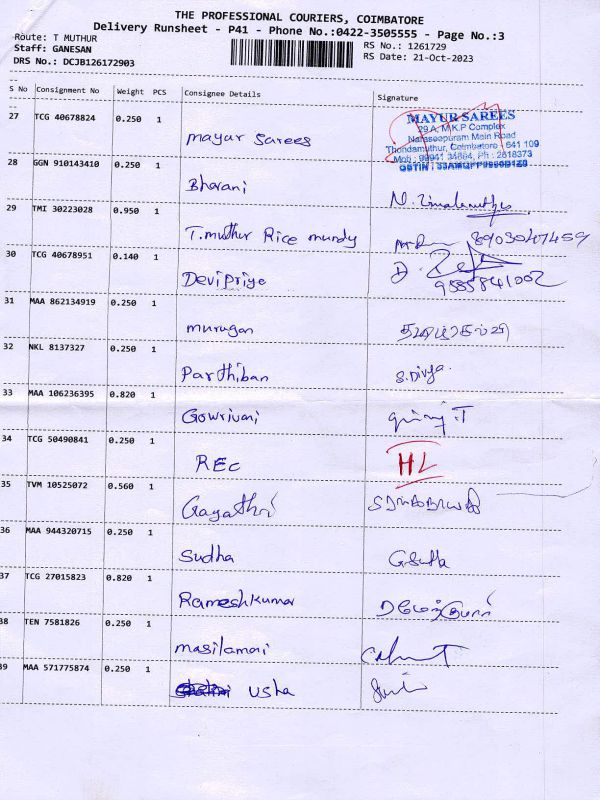 THE PROFESSIONAL COURIERS, COIMBATORE
Delivery Runsheet - P41 - Phone No.:0422-3505555 - Page No.:3
Route: T MUTHUR
Staff: GANESAN
DRS No.: DCJB126172903
RS No.: 1261729
RS Date: 21-Oct-2023
S No Consignment No Weight PCS Consignee Details Signature
27 TCG 40678824 0.250 1 Mayur Sarees
MAYUR SAREES
29.A, M.K.P Complex
Naraseepuram Main Road
Thondamuthur, Coimbatore - 641 109
28 GGN 910143410 0.250 1 Bharani
29 TMI 30223028 0.950 1 T.muthur Rice mundy 8903047459
30 TCG 40678951 0.140 1 Devipriya D. 9585841002
31 MAA 862134919 0.250 1 murugan
32 NKL 8137327 0.250 1 Parthiban S.Divya.
33 MAA 106236395 0.820 1 Gowrivani
34 TCG 50490841 0.250 1 REC HL
35 TVM 10525072 0.560 1 Gayathri
36 MAA 944320715 0.250 1 Sudha G.Sudha
37 TCG 27015823 0.820 1 Rameshkumar
38 TEN 7581826 0.250 1 masilamani
39 MAA 571775874 0.250 1 usha